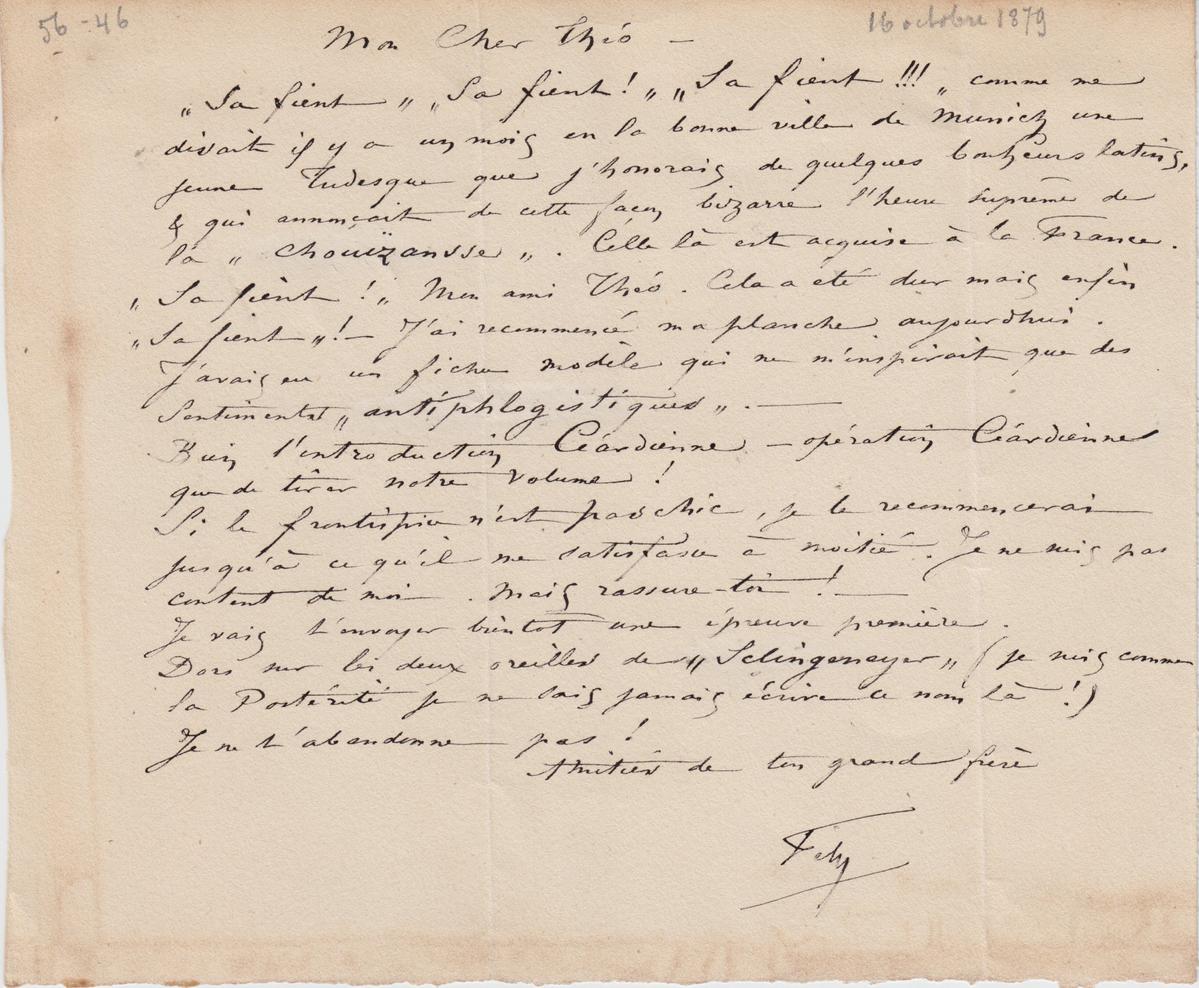 56-46
16 octobre 1879
Mon Cher Théo —
„Sa fient„ „Sa fient!„ „Sa fient!!!„ comme me
disait il y a un mois en la bonne ville de Munich une
jeune Tudesque que j'honorais de quelques bonheurs latins,
& qui annonçait de cette façon bizarre l'heure suprême de
la „chouïzansse„. Celle là est acquise à la France.
„Sa fient!„ Mon ami Théo. Cela a été dur mais enfin
„Sa fient„!— J'ai recommencé ma planche aujourdhui.
J'avais eu un fichu modèle qui ne m'inspirait que des
sentiments „antiphlogistiques„.—
Bien l'introduction Céardienne — opération Céardienne
que de tirer notre volume!
Si le frontispice n'est pas chic, je le recommencerai
jusqu'à ce qu'il me satisfasse à moitié. Je ne suis pas
content de moi. Mais rassure-toi!—
Je vais t'envoyer bientot une épreuve première.
Dors sur les deux oreilles de „Selingeneyer„ (je suis comme
la Postérité je ne sais jamais écrire ce nom là!)
Je ne t'abandonne pas!
Amitiés de ton grand frère
Fély